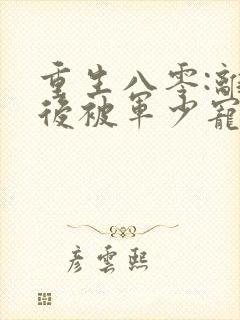 重生八零:離
後被軍少寵
彥雲熙